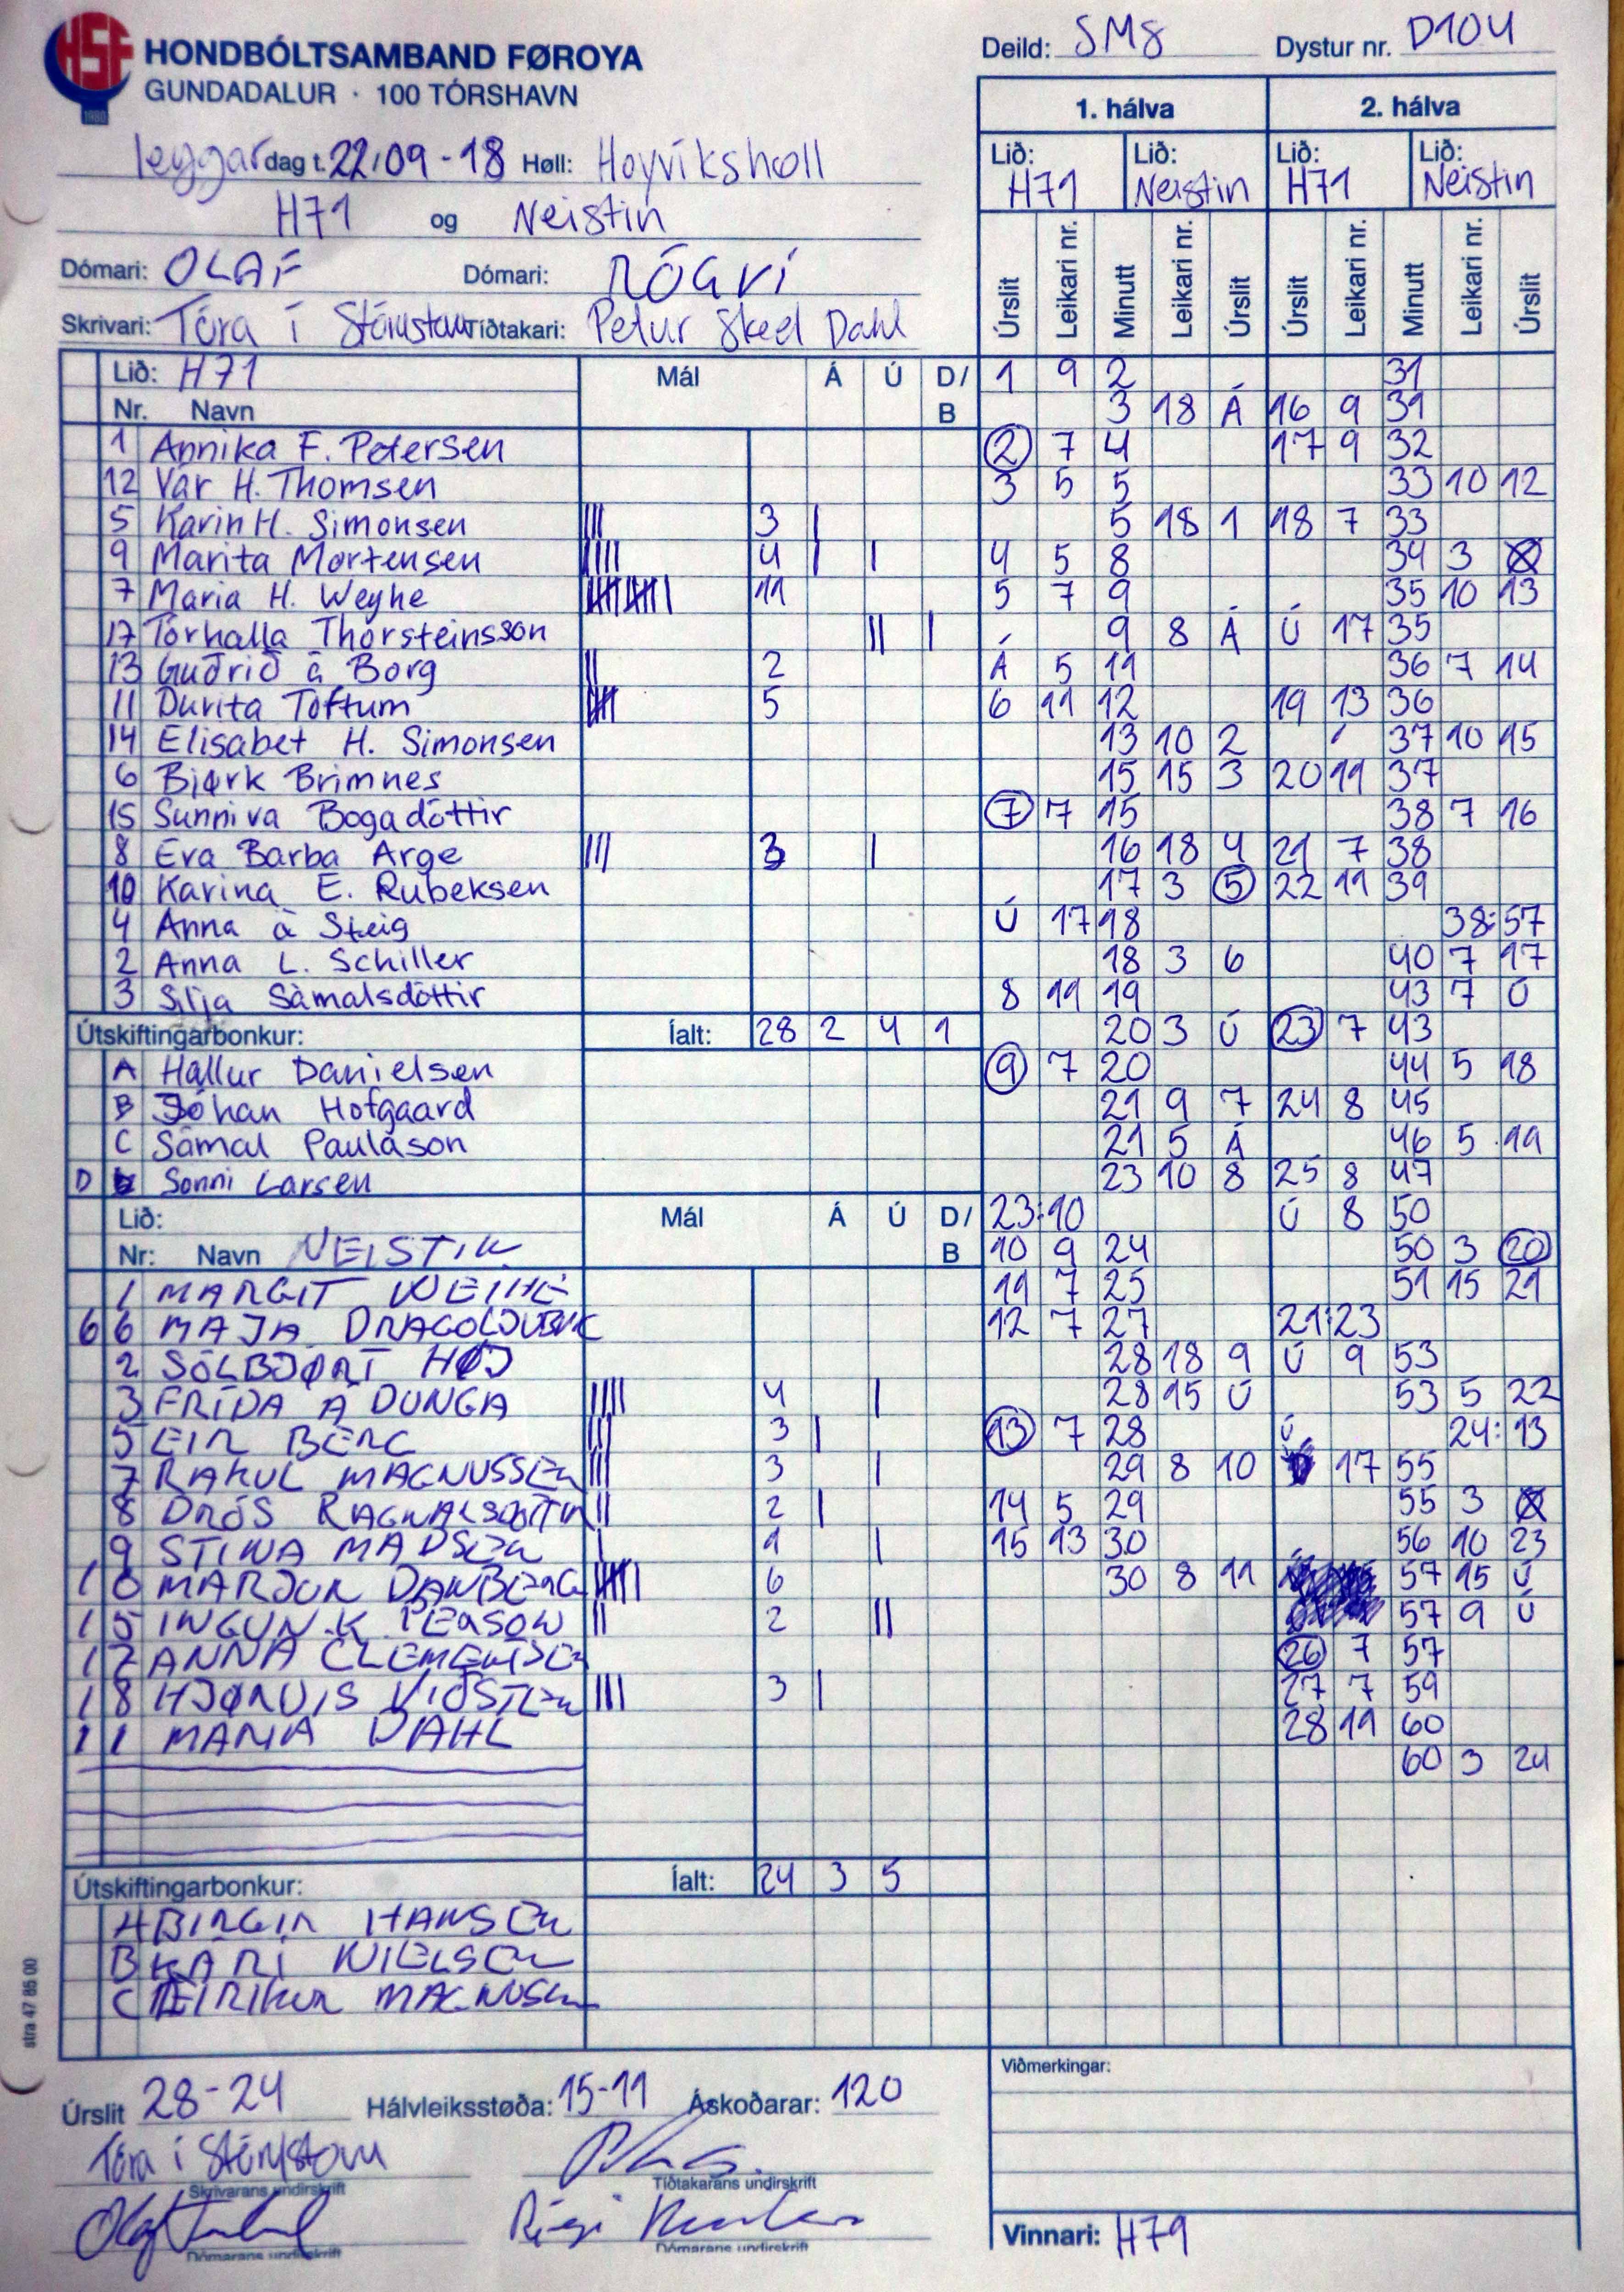 HSF
1980
HONDBÓLTSAMBAND FØROYA
GUNDADALUR · 100 TÓRSHAVN
leygar dag t. 22/09-18 Høll: Hoyvíkshøll
H71 og Neistin
Dómari: OLAF Dómari: RÓGVI
Skrivari: Tóra í Tíðtakari: Petur Skeel Dahl
Deild: SM8 Dystur nr. D104
1. hálva 2. hálva
Lið: H71 Lið: Neistin Lið: H71 Lið: Neistin
Úrslit Leikari nr. Minutt Leikari nr. Úrslit Úrslit Leikari nr. Minutt Leikari nr. Úrslit
Lið: H71 Mál Á Ú D/B
Nr. Navn
1 Annika F. Petersen
12 Vár H. Thomsen
5 Karin H. Simonsen ||| 3 |
9 Marita Mortensen |||| 4 | |
7 Maria H. Weyhe 11
17 Tórhalla Thorsteinsson || |
13 Guðrið á Borg || 2
11 Durita Toftum 5
14 Elisabet H. Simonsen
6 Bjørk Brimnes
15 Sunniva Bogadóttir
8 Eva Barba Arge ||| 3 |
10 Karina E. Rubeksen
4 Anna á Steig
2 Anna L. Schiller
3 Silja Sámalsdóttir
Útskiftingarbonkur: Íalt: 28 2 4 1
A Hallur Danielsen
B Jóhan Hofgaard
C Sámal Pauláson
D Sonni Larsen
Lið: Mál Á Ú D/B
Nr: Navn NEISTIN
1 MARGIT WEIHE
66 MAJA
2 SÓLBJØRT HØJ
3 FRÍDA Á DUNGA |||| 4 |
5 EIR BERG ||| 3 |
7 RAKUL MAGNUSSEN ||| 3 |
8 DRÓS || 2 |
9 STINA MADSEN | 1 |
10 MARJUN DANBERG 6
15 INGUN.K || 2 ||
12 ANNA CLEMENTSEN
18 HJØRDIS ||| 3 |
11 MARIA DAHL
Útskiftingarbonkur: Íalt: 24 3 5
A BIRGIR HANSEN
B KÁRI NIELSEN
C EIRIKUR MAGNUSSEN
1 9 2 31
3 18 Á 16 9 31
2 7 4 17 9 32
3 5 5 33 10 12
5 18 1 18 7 33
4 5 8 34 3
5 7 9 35 10 13
9 8 Á Ú 17 35
Á 5 11 36 7 14
6 11 12 19 13 36
13 10 2 37 10 15
15 15 3 20 11 37
7 7 15 38 7 16
16 18 4 21 7 38
17 3 5 22 11 39
Ú 17 18 38:57
18 3 6 40 7 17
8 11 19 43 7 Ú
20 3 Ú 23 7 43
9 7 20 44 5 18
21 9 7 24 8 45
21 5 Á 46 5 19
23 10 8 25 8 47
23:10 Ú 8 50
10 9 24 50 3 20
11 7 25 51 15 21
12 7 27 21:23
28 18 9 Ú 9 53
28 15 Ú 53 5 22
13 7 28 Ú 24:13
29 8 10 17 55
14 5 29 55 3
15 13 30 56 10 23
30 8 11 57 15 Ú
57 9 Ú
26 7 57
27 7 59
28 11 60
60 3 24
Viðmerkingar:
Úrslit 28-24 Hálvleiksstøða: 15-11 Áskoðarar: 120
Tóra í
Skrivarans undirskrift Tíðtakarans undirskrift
Dómarans undirskrift Dómarans undirskrift
Vinnari: H71
stra 47 85 00